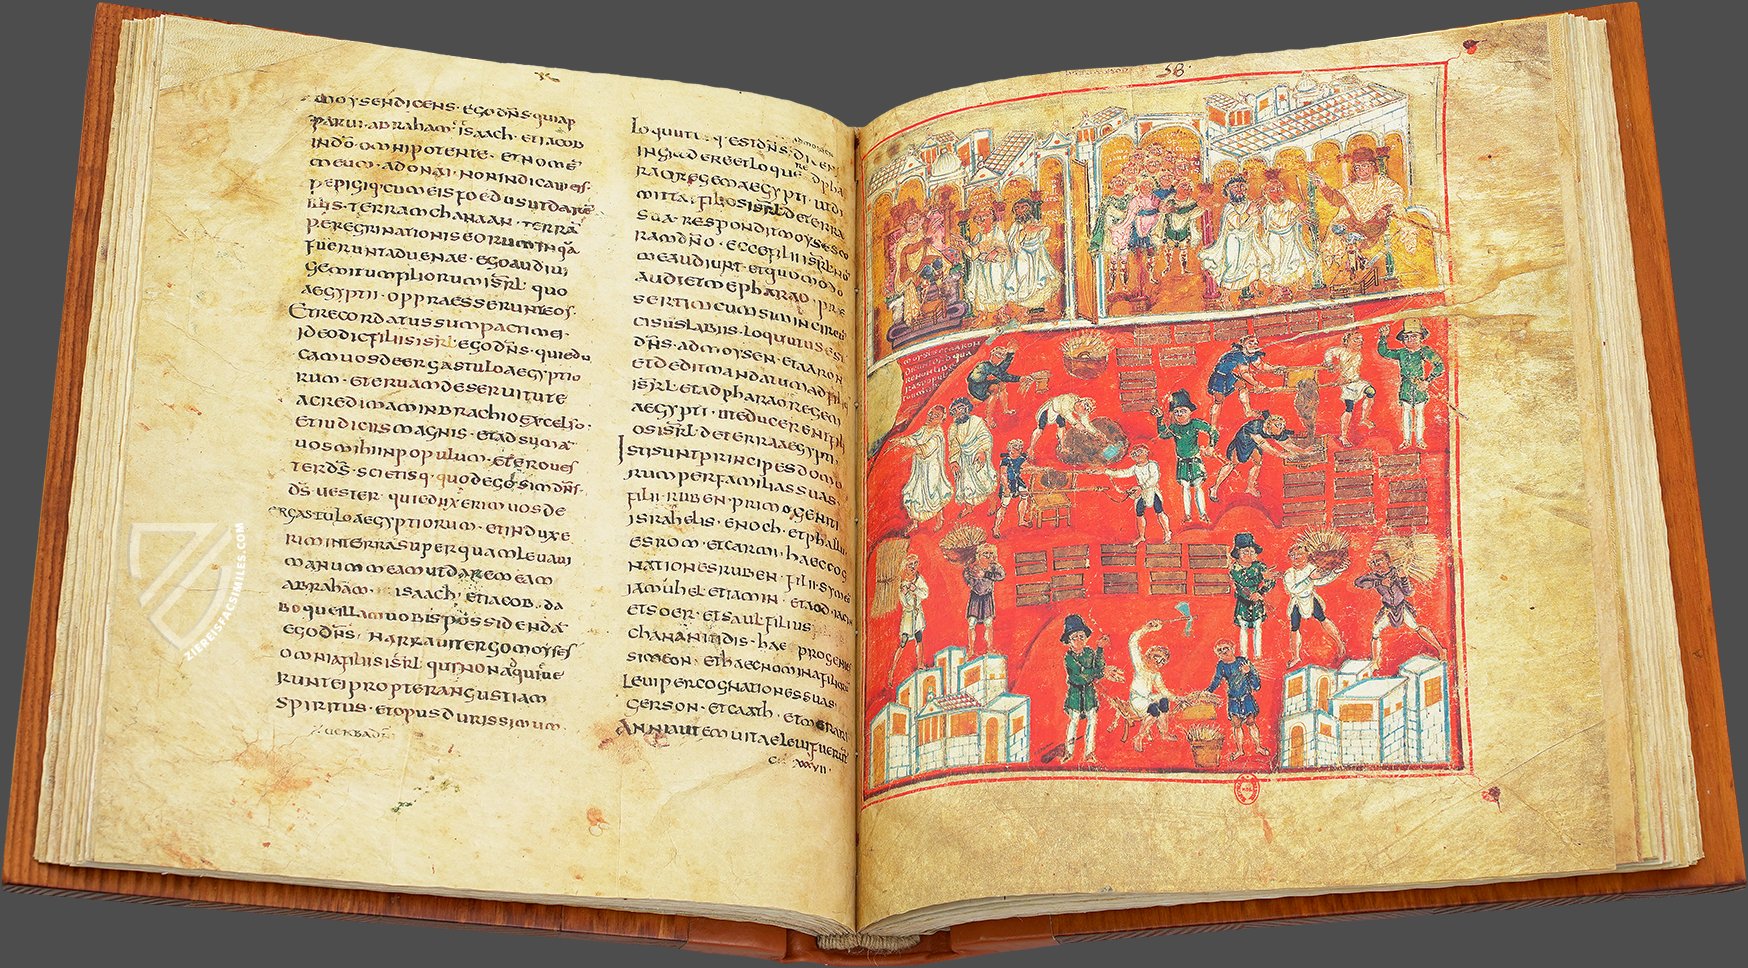 MOYSEN DICENS· EGO DN̄S· QUI AP
PARUI· ABRAHAM ISAACH· ET IACOB
IN DŌ· OMNIPOTENTE· ET NOMĒ
MEUM· ADONAI· NON INDICAVI EIS·
PEPIGIQ· CUM EIS FOEDUS UT DARĒ
ILLIS· TERRAM CHANAAN· TERRĀ
PEREGRINATIONIS EORUM IN QUA
FUERUNT ADUENAE· EGO AUDIUI
GEMITUM FILIORUM ISRL· QUO
AEGYPTII· OPPRAESSERUNT EOS·
ET RECORDATUS SUM PACTI MEI·
IDEO DIC FILIIS ISRL· EGO DN̄S· QUI EDU
CAM UOS DE ERGASTULO AEGYPTIO
RUM· ET ERUAM DE SERUITUTE
AC REDIMAM IN BRACHIO EXCELSO·
ET IUDICIIS MAGNIS· ET ADSUMĀ
UOS MIHI IN POPULUM· ET ERO UES
TER DS̄· SCIETISQ· QUOD EGO SIM DN̄S·
DS̄ UESTER· QUI EDUXERIM UOS DE
ERGASTULO AEGYPTIORUM· ET INDUXE
RIM IN TERRA SUPER QUAM LEUAUI
MANUM MEAM UT DAREM EAM
ABRAHAM· ISAACH· ET IACOB· DA
BOQUE ILLAM UOBIS POSSIDENDĀ
EGO DN̄S· NARRAUIT ERGO MOYSES
OMNIA FILIIS ISRL· QUI NON ADQUIEUE
RUNT EI PROPTER ANGUSTIAM
SPIRITUS· ET OPUS DURISSIMUM·
INGREDERE ET LOQUERE AD PHA
RAO REGEM AEGYPTI· UT DI
MITTA FILIOS ISRL DE TERRA
SUA· RESPONDIT MOYSES CO
RAM DN̄O· ECCE FILII ISRL NŌ
ME AUDIUNT· ET QUOMODO
AUDIET ME PHARAO· PRE
SERTIM CUM SIM INCIRCŪ
CISUS LABIIS· LOQUUTUS EST
DN̄S· AD MOYSEN· ET AARON
ET DEDIT MANDATUM AD FILIOS
ISRL· ET AD PHARAO REGEM
AEGYPTI· UT EDUCERENT FILI
OS ISRL· DE TERRA AEGYPTI·
ISTI SUNT PRINCIPES DOMO
RUM PER FAMILIAS SUAS·
FILII· RUBEN· PRIMOGENITI
ISRAHELIS· ENOCH· ET PHALLU
ESROM· ET CARMI· HAE COG
NATIONES RUBEN· FILII· SYMEO
IAMUHEL ET IAMIN· ET AOD· IACH
ET SOER· ET SAUL FILIUS
CHANANITIDIS· HAE PROGENIES
SIMEON· ET HAEC NOMINA FILIORŪ
LEUI PER COGNATIONES SUAS·
GERSON· ET CAATH· ET MERARI
ANNI AUTEM UITAE LEUI FUERUNT
C· XXXVII·
58·
ZIEREISFACSIMILES.COM